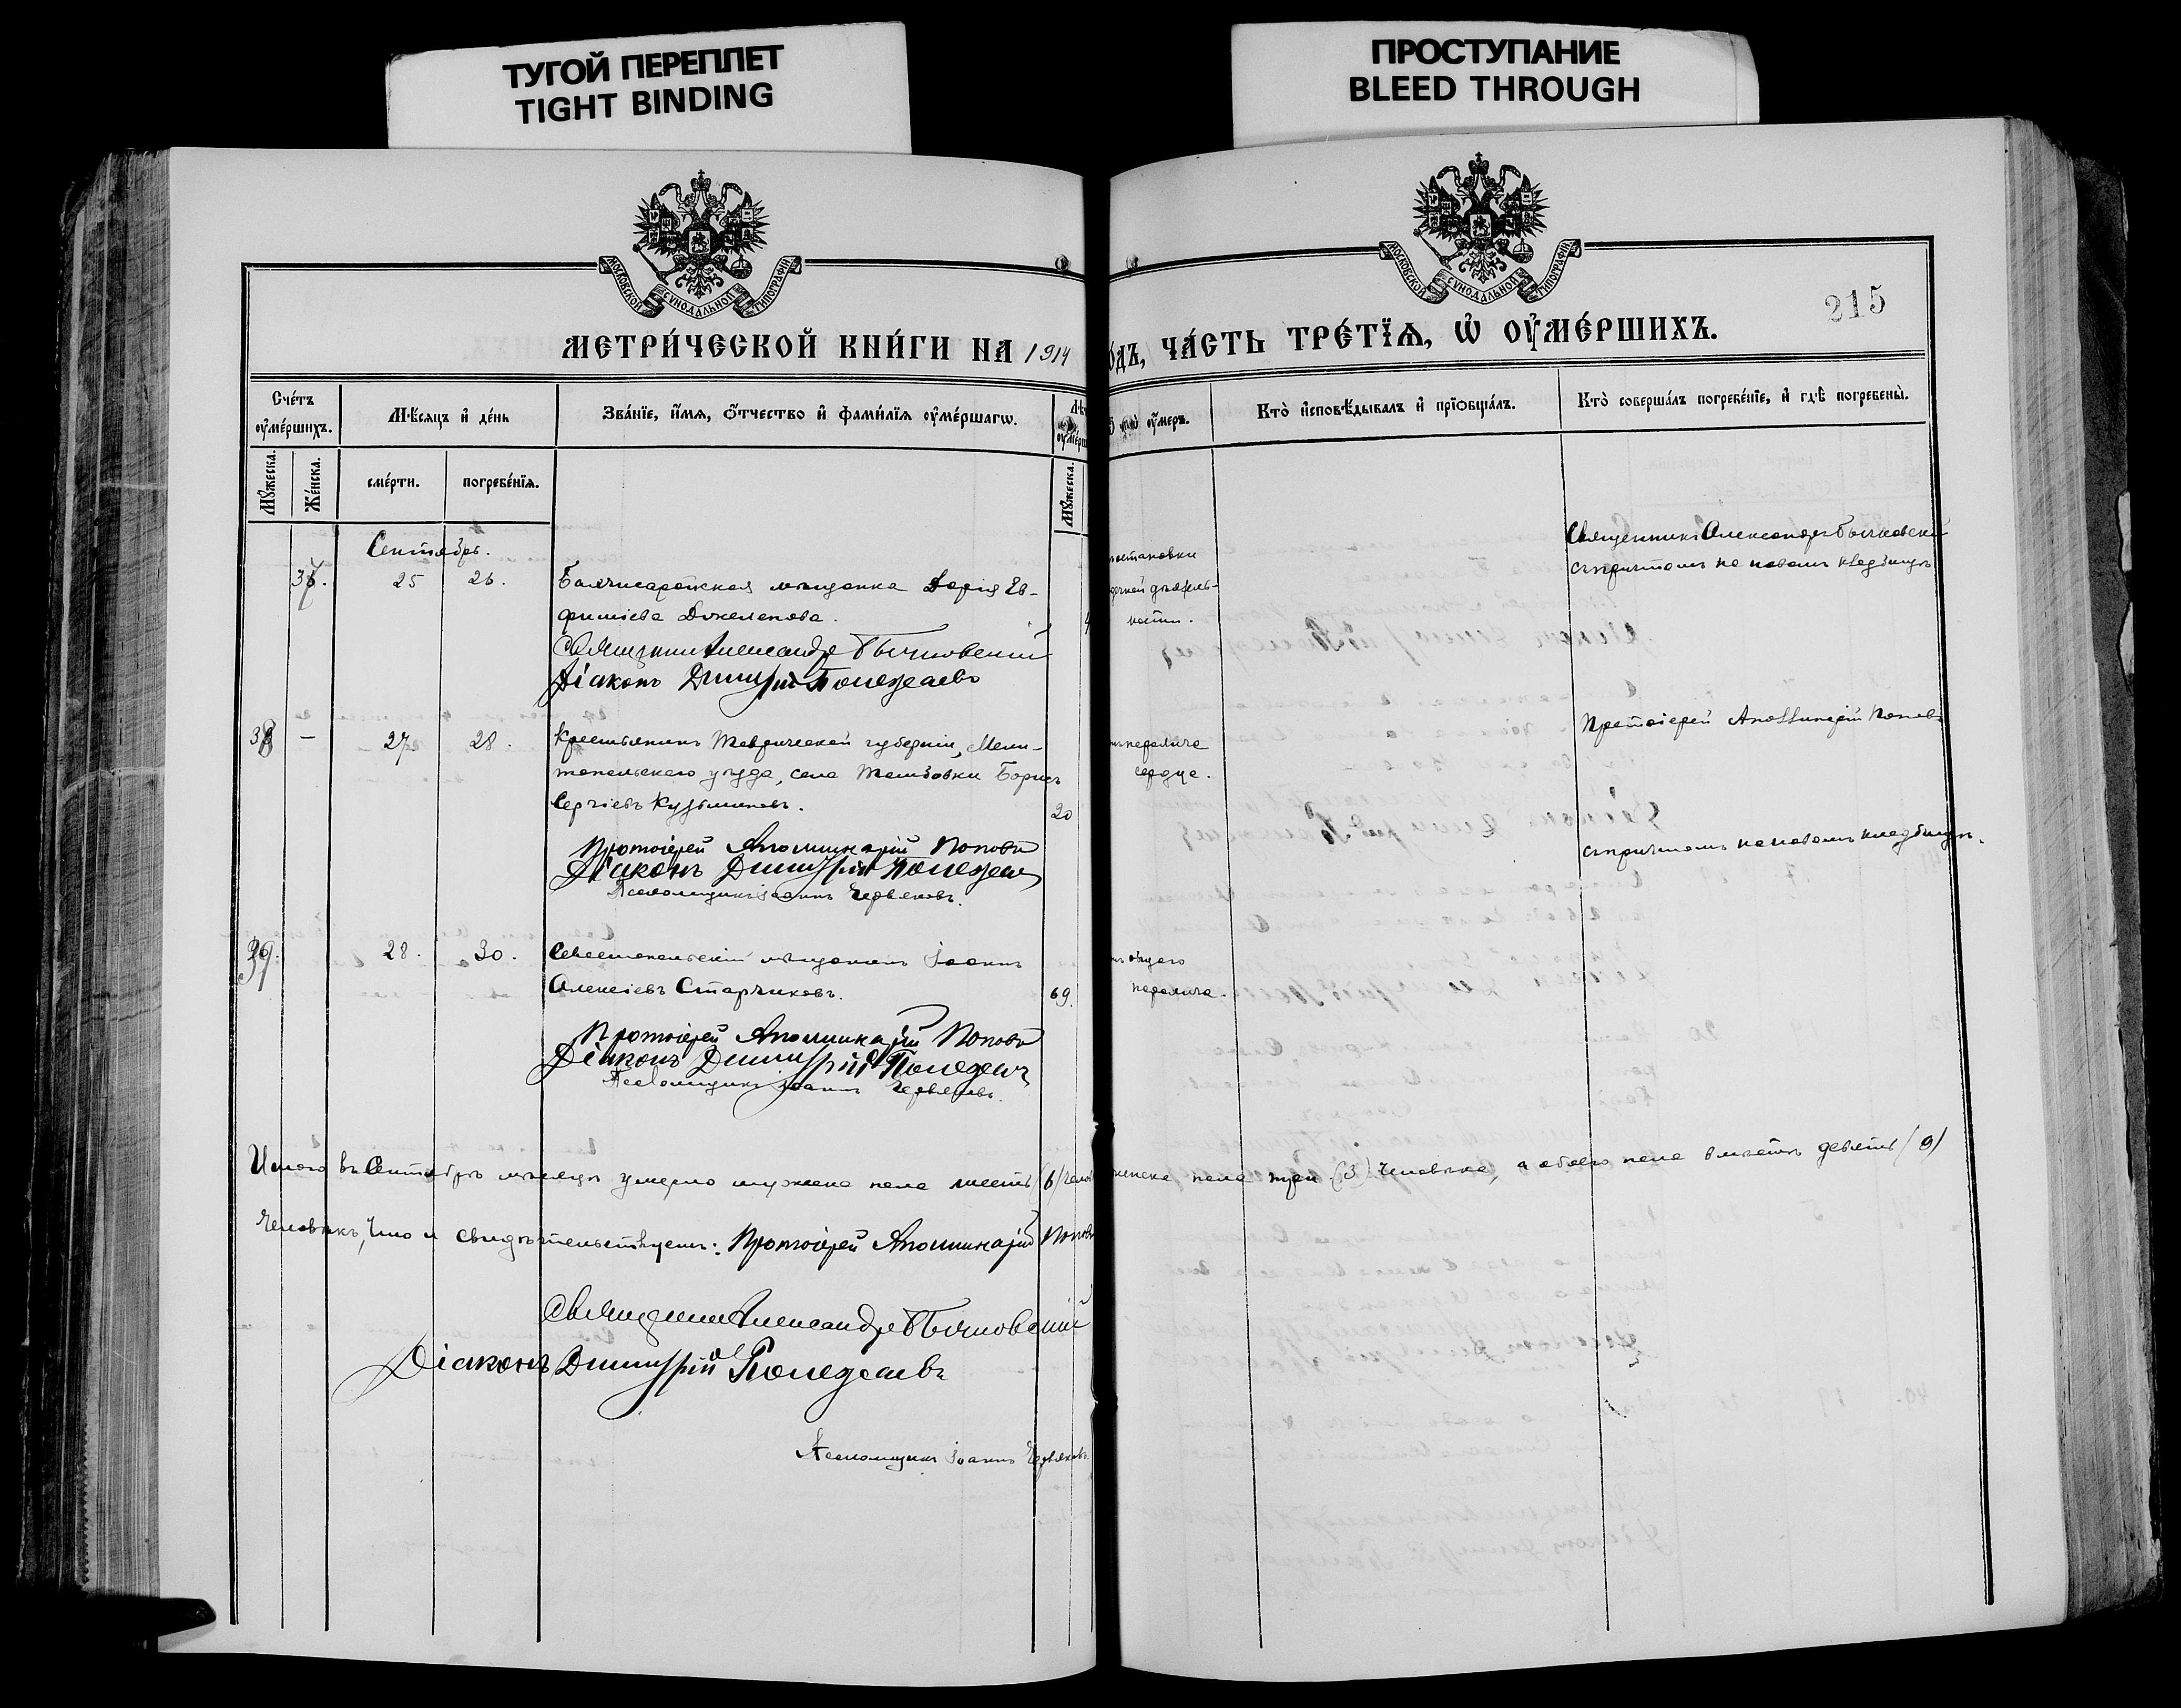 ТУГОЙ ПЕРЕПЛЕТ
TIGHT BINDING
ПРОСТУПАНИЕ
BLEED THROUGH
МОСКОВСКОЙ СѴНОДАЛЬНОЙ ТИПОГРАФІИ
МОСКОВСКОЙ СѴНОДАЛЬНОЙ ТИПОГРАФІИ
215
МЕТРИ́ЧЕСКОЙ КНИ́ГИ НА 1914
ЧА́СТЬ ТРЕ́ТЇѦ, Ѡ ОУ҆МЕ́РШИХЪ.
Сче́тъ оу҆ме́ршихъ.
Мѣ́сяцъ и҆ де́нь
Зва́нїе, и҆́мя, ѻ҆́тчество и҆ фами́лїя оу҆ме́ршагѡ.
оу҆́меръ.
Кто̀ и҆сповѣ́дывалъ и҆ прїѡбща́лъ.
Кто̀ соверша́лъ погребе́нїе, и҆ гдѣ̀ погребены̀.
Мꙋ́жеска.
Же́нска.
сме́рти.
погребе́нїя.
Мꙋ́жеска.
Сентябрь.
37. 25 26.
Бахчисарайская мѣщанка Дарія Ев-
фиміева Джелепова.
Священникъ Александръ Бычковскій
Діаконъ Димитрій Полежаевъ
становки
дечной дѣятель-
ности.
Священникъ Александръ Бычковскій
съ причтомъ на новомъ кладбищѣ
38 — 27 28.
Крестьянинъ Таврической губерніи, Мели-
топольскаго уѣзда, села Тамбовки Борисъ
Сергіевъ Кузьминовъ.
20
Протоіерей Аполлинарій Поповъ
Діаконъ Димитрій Полежаевъ
Псаломщикъ Іоаннъ Червяковъ.
паралича
сердца.
Протоіерей Аполлинарій Поповъ
съ причтомъ на новомъ кладбищѣ.
39. 28. 30.
Севастопольскій мѣщанинъ Іоаннъ
Алексіевъ Старчиковъ.
69.
Протоіерей Аполлинарій Поповъ
Діаконъ Димитрій Полежаевъ
Псаломщикъ Іоаннъ Червяковъ.
общаго
паралича.
Итого въ Сентябрѣ мѣсяцѣ умерло мужеска пола шесть (6) челов женска пола три (3) человѣка, а обоего пола вмѣстѣ девять (9)
человѣкъ, что и свидѣтельствуемъ: Протоіерей Аполлинарій Поповъ
Священникъ Александръ Бычковскій
Діаконъ Димитрій Полежаевъ
Псаломщикъ Іоаннъ Червяковъ.